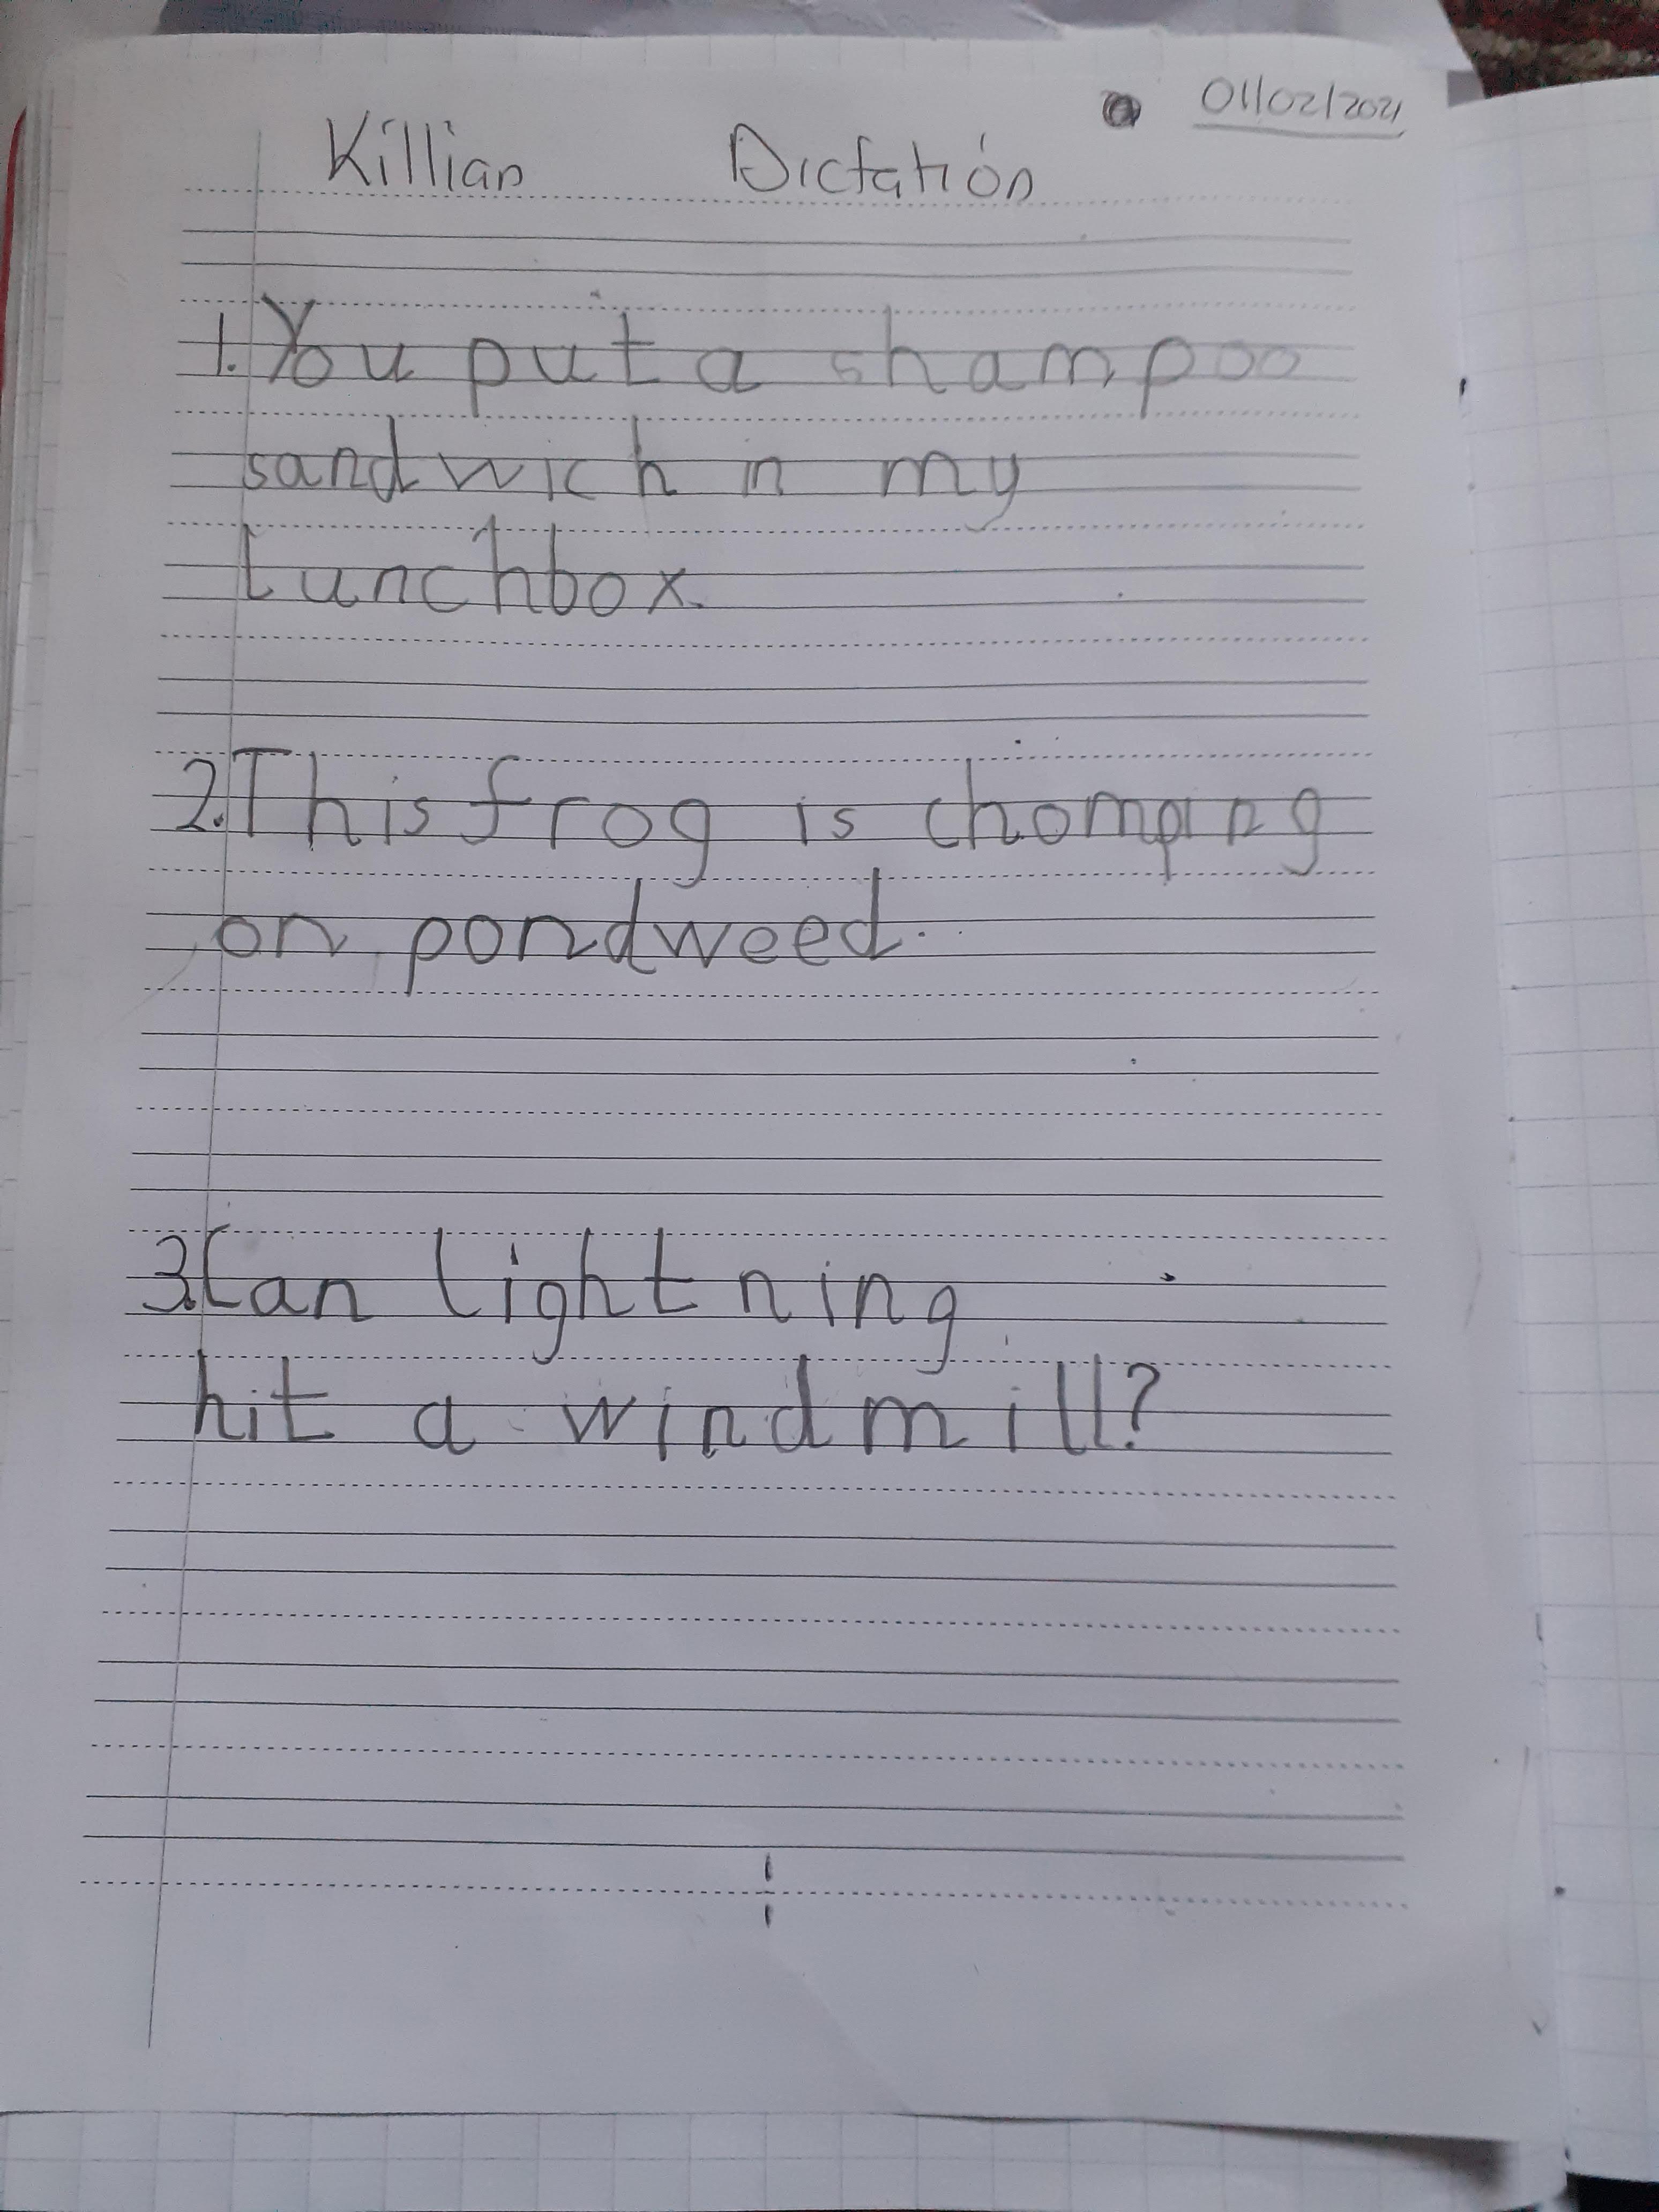 01/02/2021
Killian Dictation
1. You put a shampoo
sandwich in my
lunchbox.
2. This frog is chomping
on pondweed.
3. Can lightning
hit a windmill?